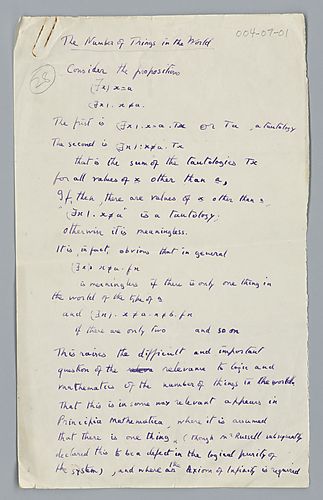 004-07-01
The Number of Things in the World
28
Consider the propositions
(∃x) x=a
(∃x). x≠a.
The first is (∃x). x=a. Tx or Ta, a tautology
The second is (∃x): x≠a. Tx
that is the sum of the tautologies Tx
for all values of x other than a,
If, then, there are values of x other than a
"(∃x). x≠a" is a tautology.
otherwise it is meaningless.
It is, in fact, obvious that in general
(∃x) x≠a. fx
is meaningless if there is only one thing in
the world of the type of a
and (∃x). x≠a. x≠b. fx
if there are only two and so on
This raises the difficult and important
question of the relevance to logic and
mathematics of the number of things in the world.
That this is in some way relevant appears in
Principia Mathematica, where it is assumed
that there is one thing (though Mr Russell subsequently
declared this to be a defect in the logical purity of
the system), and where the Axiom of Infinity is required